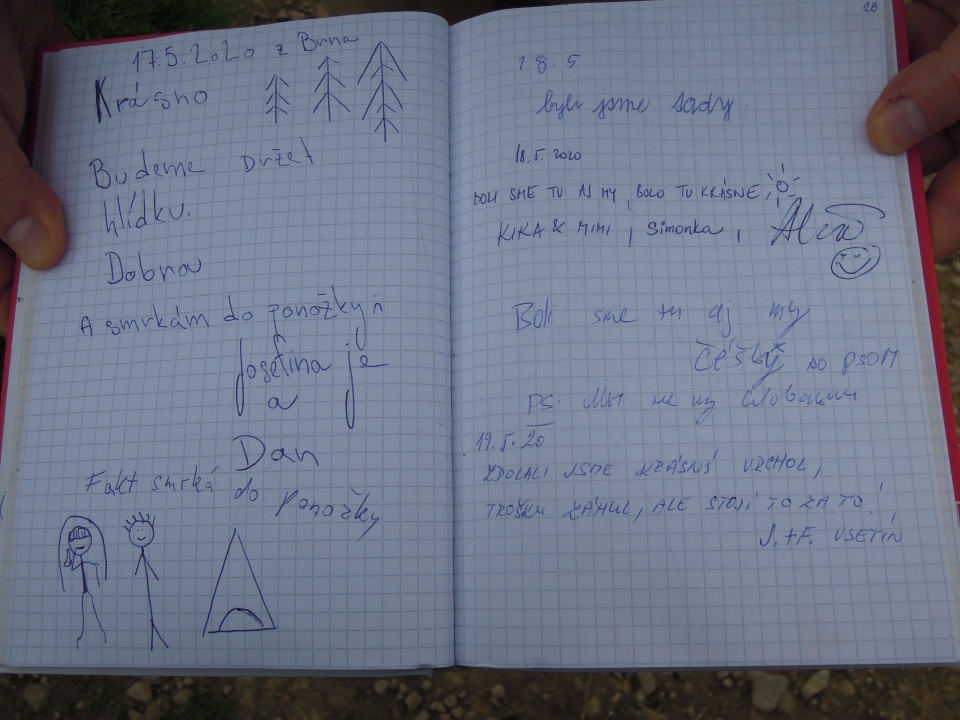 17.5.2020 z Brna
Krásno
Budeme Držet
hlídku.
Dobrou
A smrkám do ponožky
Josefina je
a
Dan
Fakt smrká do
ponožky
28
18.5
byli jsme tady.
18.5. 2020
BOLI SME TU AJ MY, BOLO TU KRÁSNE,
KIKA & MIMI, Simonka,
Boli sme tu aj my
Češky SO PSOM
PS:
19.5.20
ZDOLALI JSME KRÁSNÝ VRCHOL,
TROŠKU ZÁHUL, ALE STOJÍ TO ZA TO!
J.+F. VSETÍN